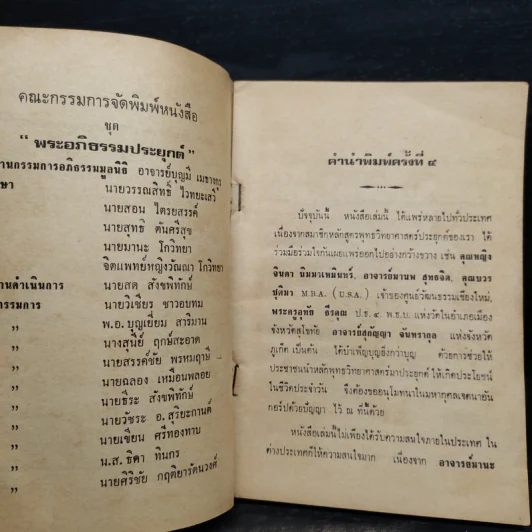 คณะกรรมการจัดพิมพ์หนังสือ
ชุด
“ พระอภิธรรมประยุกต์ ”
านกรรมการอภิธรรมมูลนิธิ อาจารย์บุญมี เมธางกูร
ษา นายวรรณสิทธิ ไวทยะเสวี
นายสอน ไตรยสรรค์
นายสุทธิ ตันศรีสุข
นายมานะ โกวิทยา
จิตแพทย์หญิงวัณณา โกวิทยา
านดำเนินการ นายสด สังขพิทักษ์
กรรมการ นายวิเชียร ชาวอบทม
,, พ.อ. บุญเยี่ยม สาริมาน
,, นางสุนีย์ ฤกษ์สะอาด
,, นายสรรค์ชัย พรหมฤาษี
,, นายฉลอง เหมือนพลอย
,, นายธีระ สังขพิทักษ์
,, นายวัชระ อ. สุริยะกานต์
,, นายเซียน ศรีทองทาบ
,, น.ส. ธิดา ทินกร
,, นายศิริชัย กฤติยารัตนวงศ์
คำนำพิมพ์ครั้งที่ ๔
ปัจจุบันนี้ หนังสือเล่มนี้ ได้แพร่หลายไปทั่วประเทศ
เนื่องจากสมาชิกหลักสูตรพุทธวิทยาศาสตร์ประยุกต์ของเรา ได้
ร่วมมือร่วมใจกันเผยแพร่ออกไปอย่างกว้างขวาง เช่น คุณหญิง
จินดา นิมมาเหมินทร์, อาจารย์มานพ สุทธจิต, คุณบวร
ชุติมา M.B.A. (U.S.A.) เจ้าของศูนย์วัฒนธรรมเชียงใหม่,
พระครูอุทัย ธีรคุณ ป.ธ. ๔ พ.ธ.บ. แห่งวัดในอำเภอเมือง
จังหวัดสุโขทัย อาจารย์สุกัญญา จันทรากุล แห่งจังหวัด
ภูเก็ต เป็นต้น ได้บำเพ็ญบุญยิ่งกว่าบุญ ด้วยการช่วยให้
ประชาชนนำหลักพุทธวิทยาศาสตร์มาประยุกต์ ให้เกิดประโยชน์
ในชีวิตประจำวัน จึงต้องขออนุโมทนาในมหากุศลเจตนาอัน
กอร์ปด้วยปัญญา ไว้ ณ ที่นี้ด้วย
หนังสือเล่มนี้ไม่เพียงได้รับความสนใจภายในประเทศ ใน
ต่างประเทศก็ให้ความสนใจมาก เนื่องจาก อาจารย์มานะ